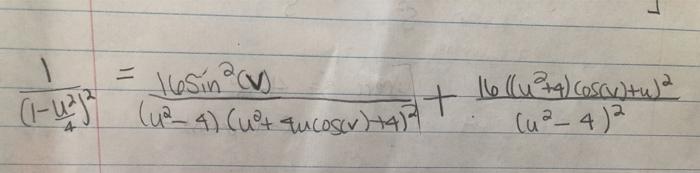 1/(1-u²/4)² = 16sin²(v)/((u²-4)(u²+4ucos(v)+4)²) + 16((u²+4)cos(v)+u)²/(u²-4)²